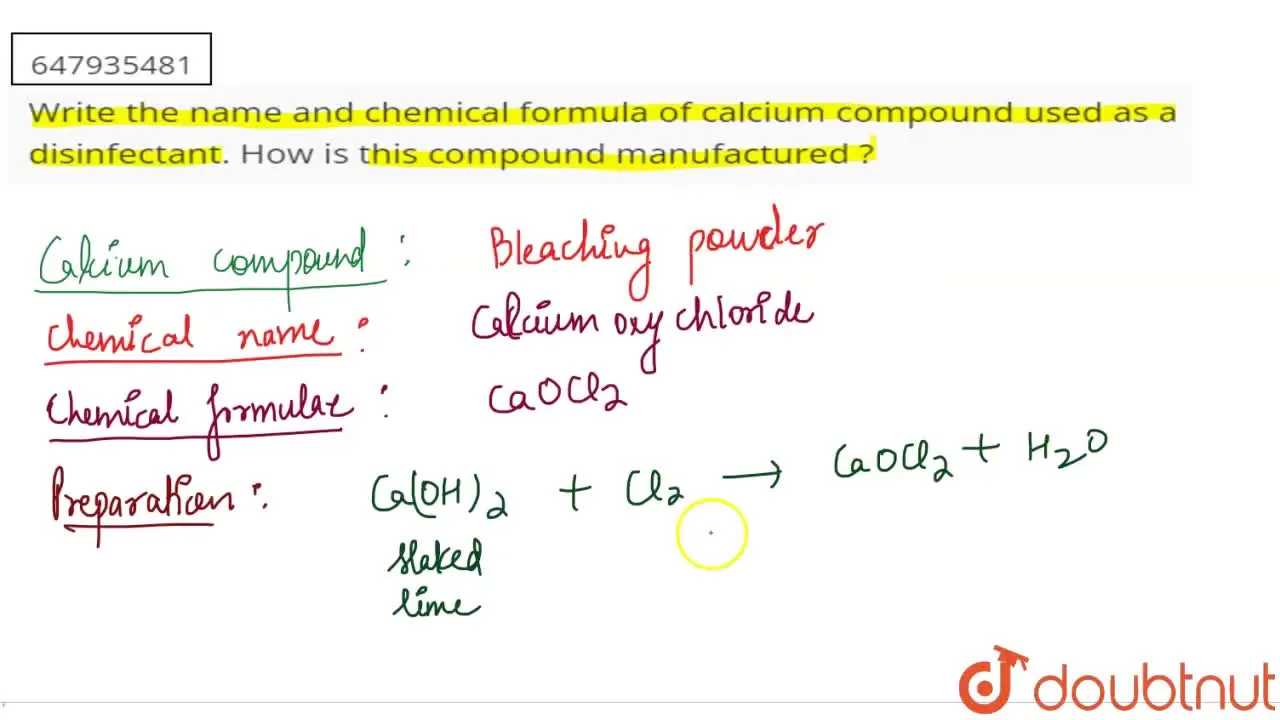 647935481
Write the name and chemical formula of calcium compound used as a
disinfectant. How is this compound manufactured ?
Calcium compound : Bleaching powder
Chemical name : Calcium oxy chloride
Chemical formulae : CaOCl2
Preparation : Ca(OH)2 + Cl2 → CaOCl2 + H2O
slaked
lime
doubtnut